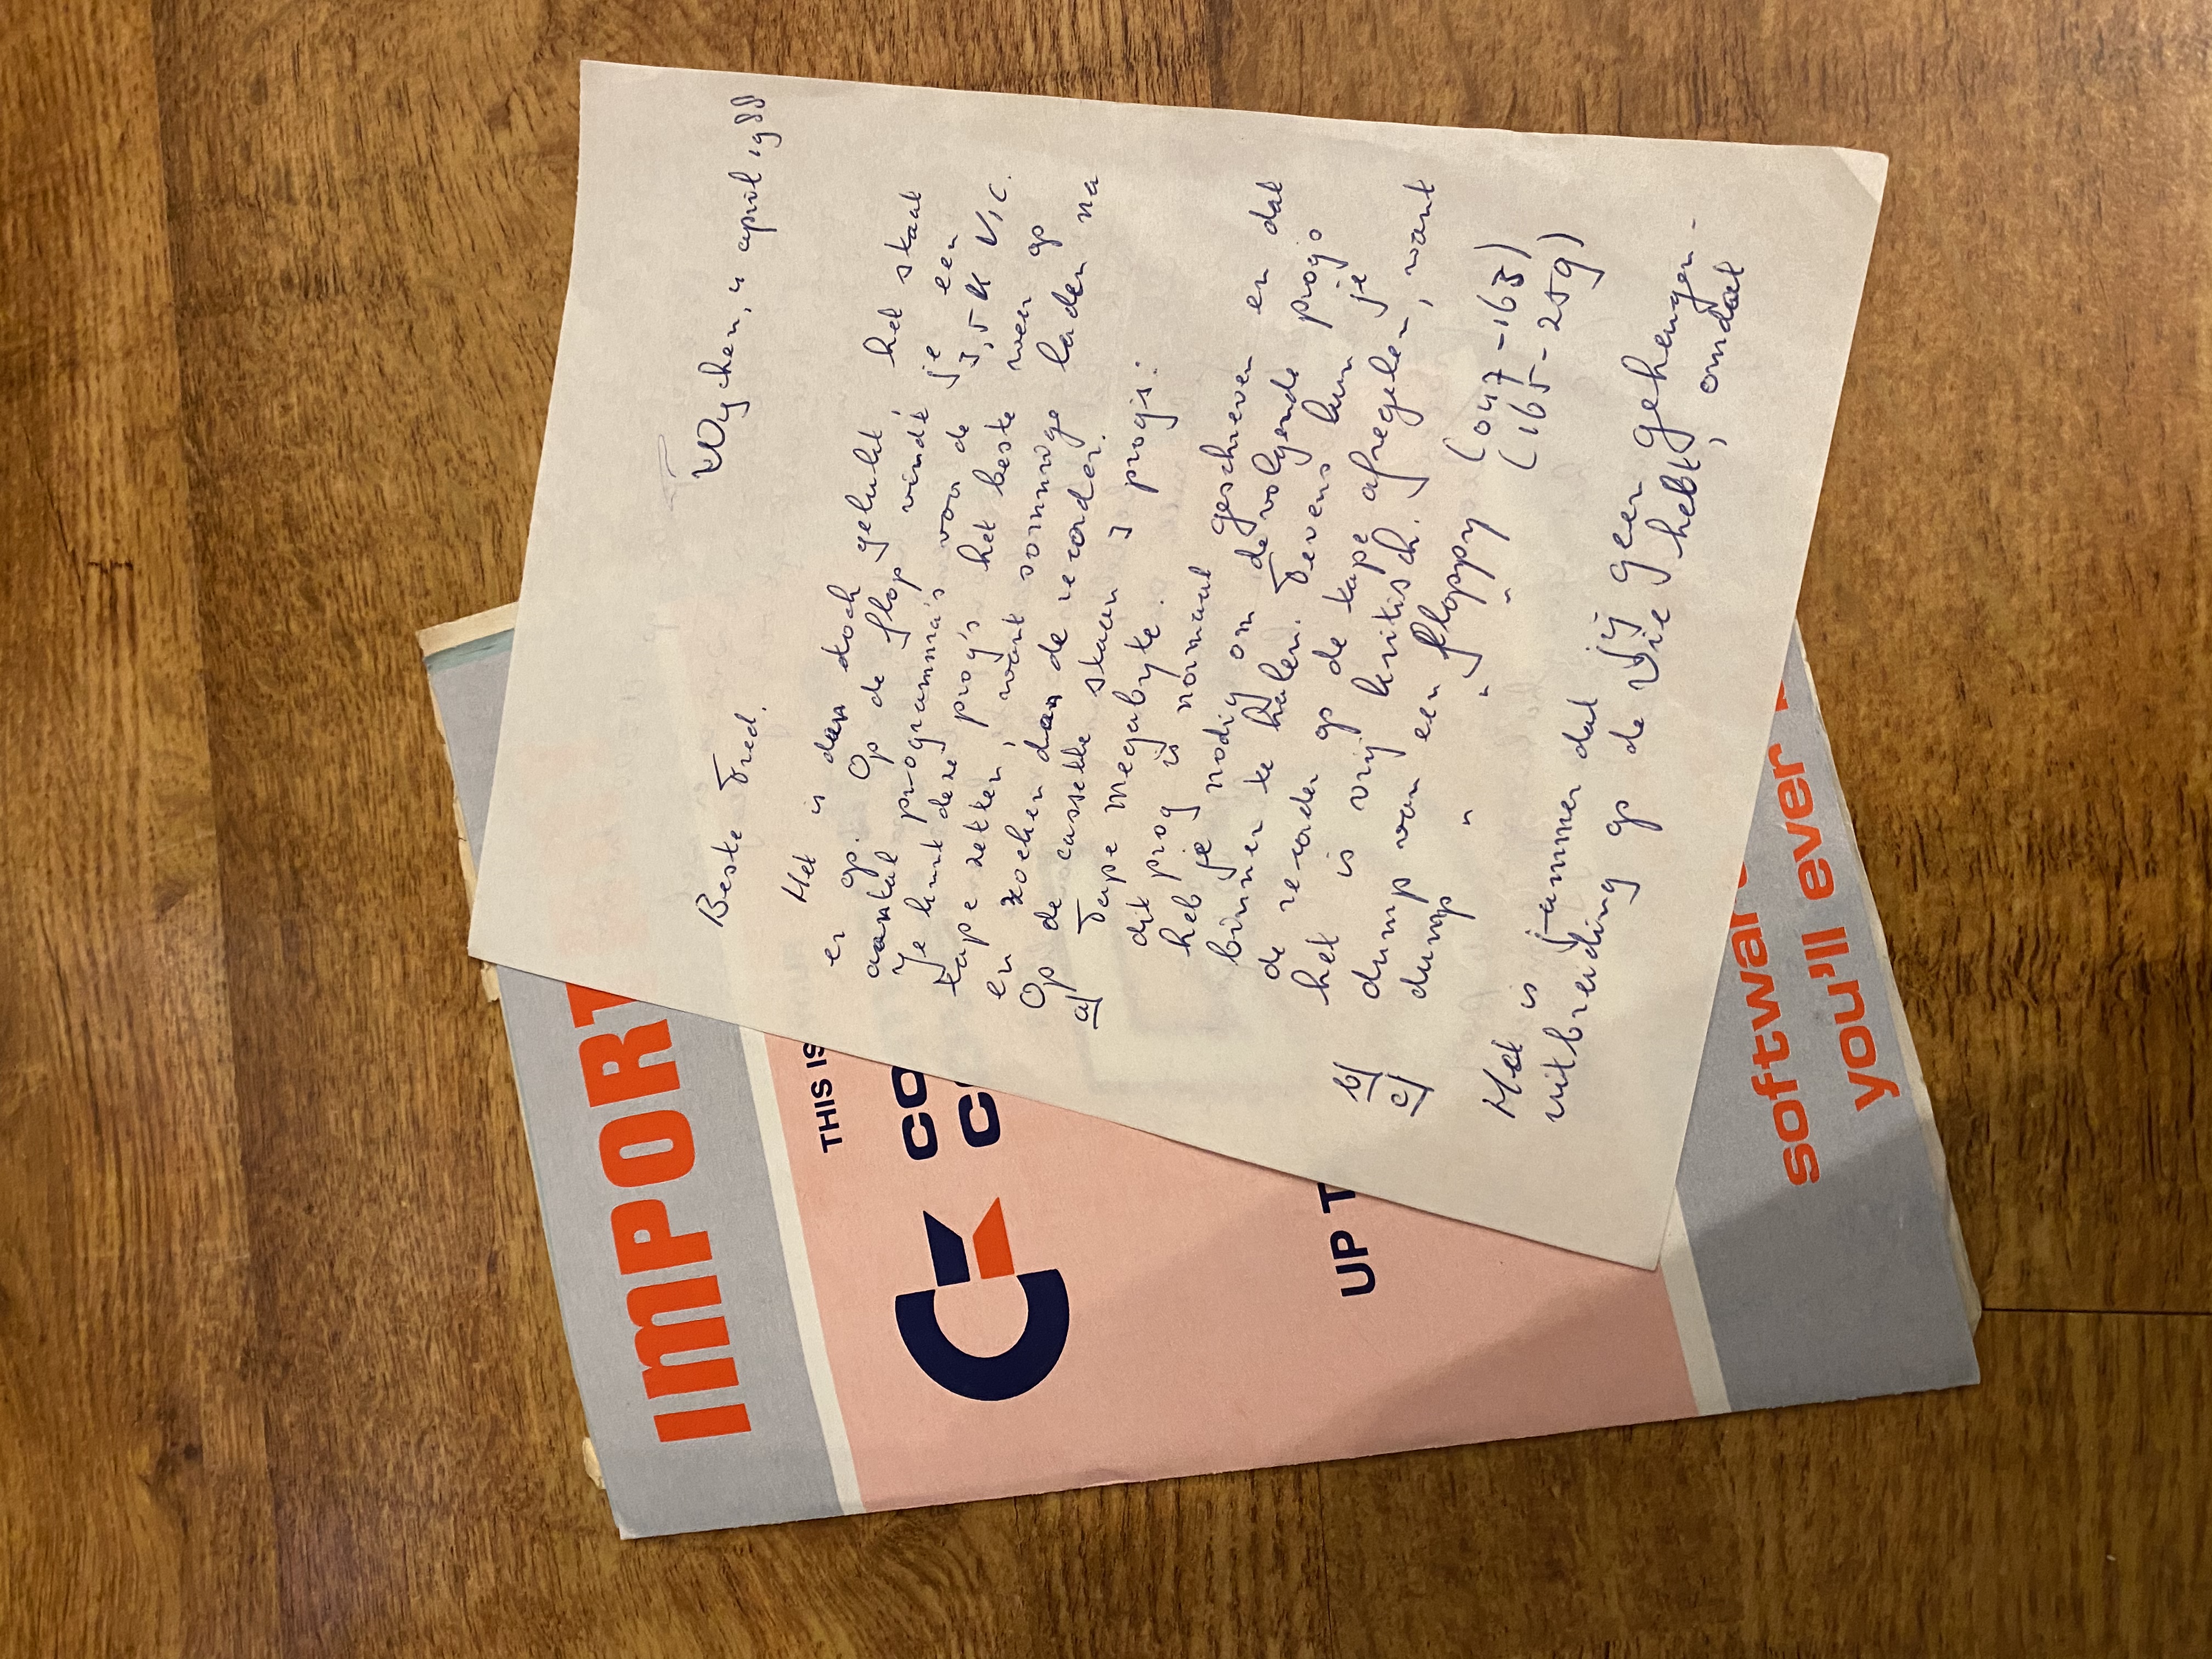 IMPORT
THIS IS
CO
CO
UP T
softwar
you'll ever b
Wychen, 11 april 1988
Beste Fred.
Het is dan toch gelukt, het staat
er op. Op de flop vindt je een
aantal programma's voor de 3,5K VIC.
Je kunt deze prog's het beste weer op
tape zetten, want sommige laden na
en zoeken dan de recorder.
Op de cassette staan 3 prog's:
a) Tape Megabyte.
dit prog is normaal geschreven en dat
heb je nodig om de volgende prog's
binnen te halen. Tevens kun je
de recorder op de tape afregelen, want
het is vrij kritisch.
b) dump van een floppy (047-163)
c) dump " " " (165-259)
Het is jammer dat jij geen geheugen-
uitbreiding op de Vic hebt, omdat